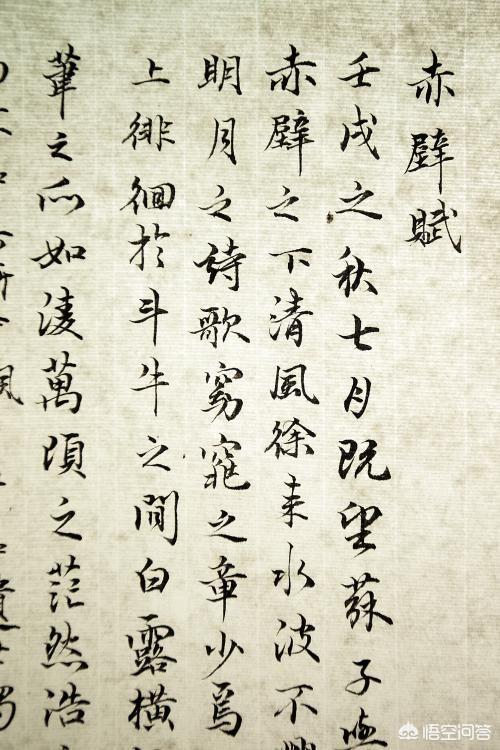 赤壁賦
壬戌之秋七月既望蘇子與
赤壁之下清風徐来水波不
明月之詩歌窈窕之章少焉
上徘徊於斗牛之間白露横
葦之所如淩萬頃之茫然浩
悟空问答